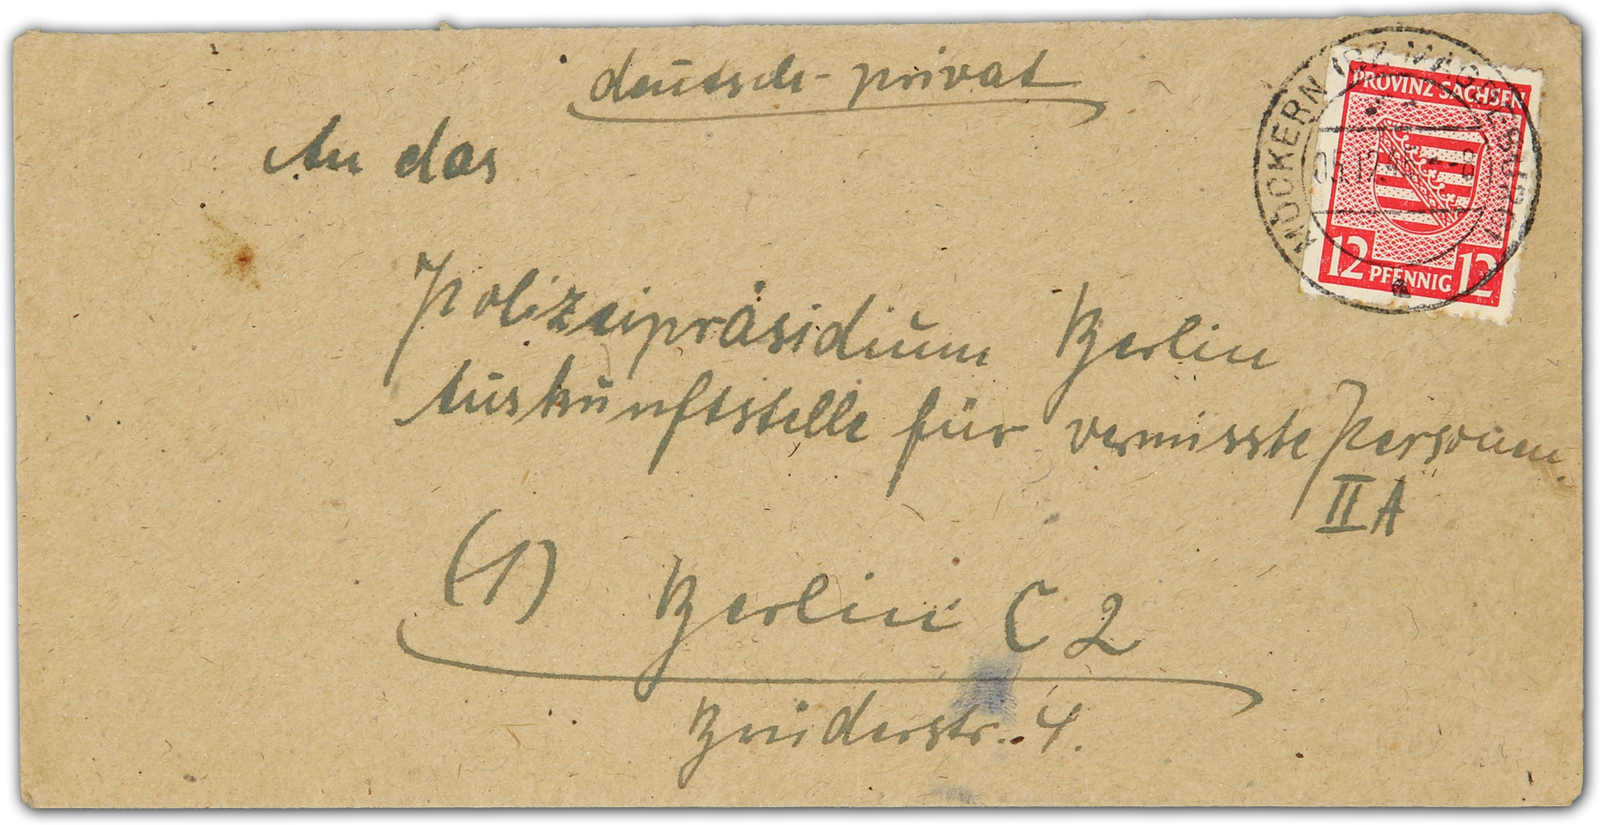 deutsch-privat
An das
Polizeipräsidium Berlin
Auskunftstelle für vermisste Personen
II A
(1) Berlin C 2
Brüderstr. 4.
PROVINZ SACHSEN
12 PFENNIG 12
MÖCKERN (BZ. MAGDEBURG)